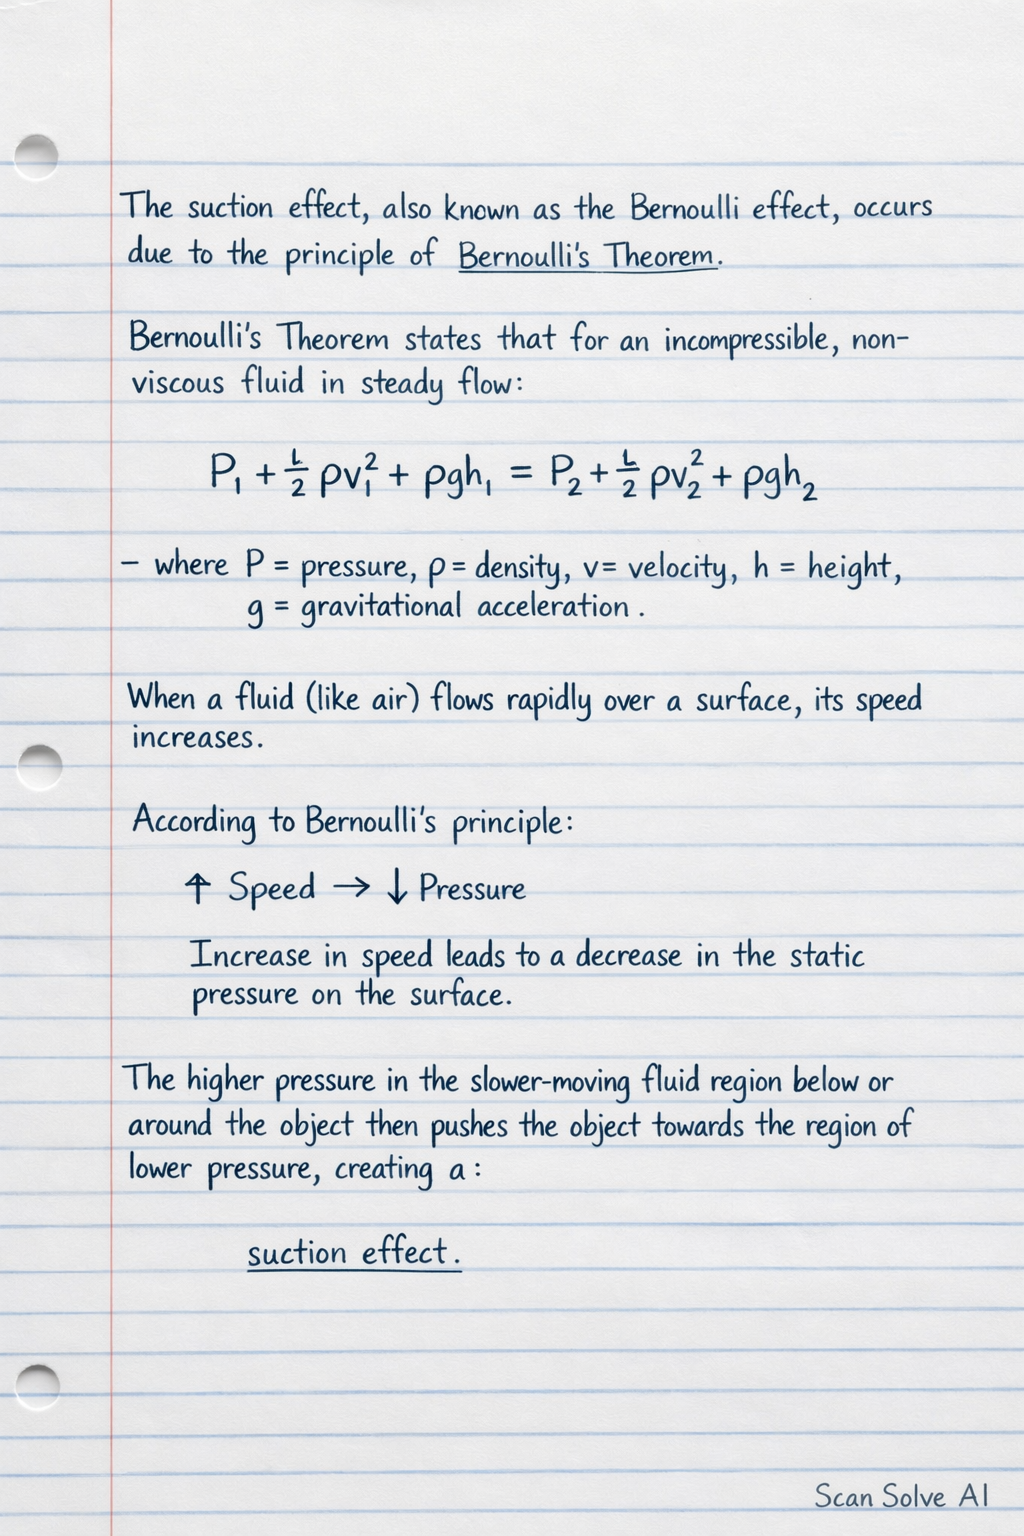 The suction effect, also known as the Bernoulli effect, occurs
due to the principle of Bernoulli's Theorem.
Bernoulli's Theorem states that for an incompressible, non-
viscous fluid in steady flow:
P₁ + ½ ρv₁² + ρgh₁ = P₂ + ½ ρv₂² + ρgh₂
– where P = pressure, ρ = density, v = velocity, h = height,
g = gravitational acceleration.
When a fluid (like air) flows rapidly over a surface, its speed
increases.
According to Bernoulli's principle:
↑ Speed → ↓ Pressure
Increase in speed leads to a decrease in the static
pressure on the surface.
The higher pressure in the slower-moving fluid region below or
around the object then pushes the object towards the region of
lower pressure, creating a:
suction effect.
Scan Solve AI